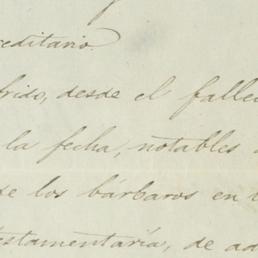 reditario.
frido, desde el falle
la fecha, notables
de los bárbaros en
testamentaría, de ad